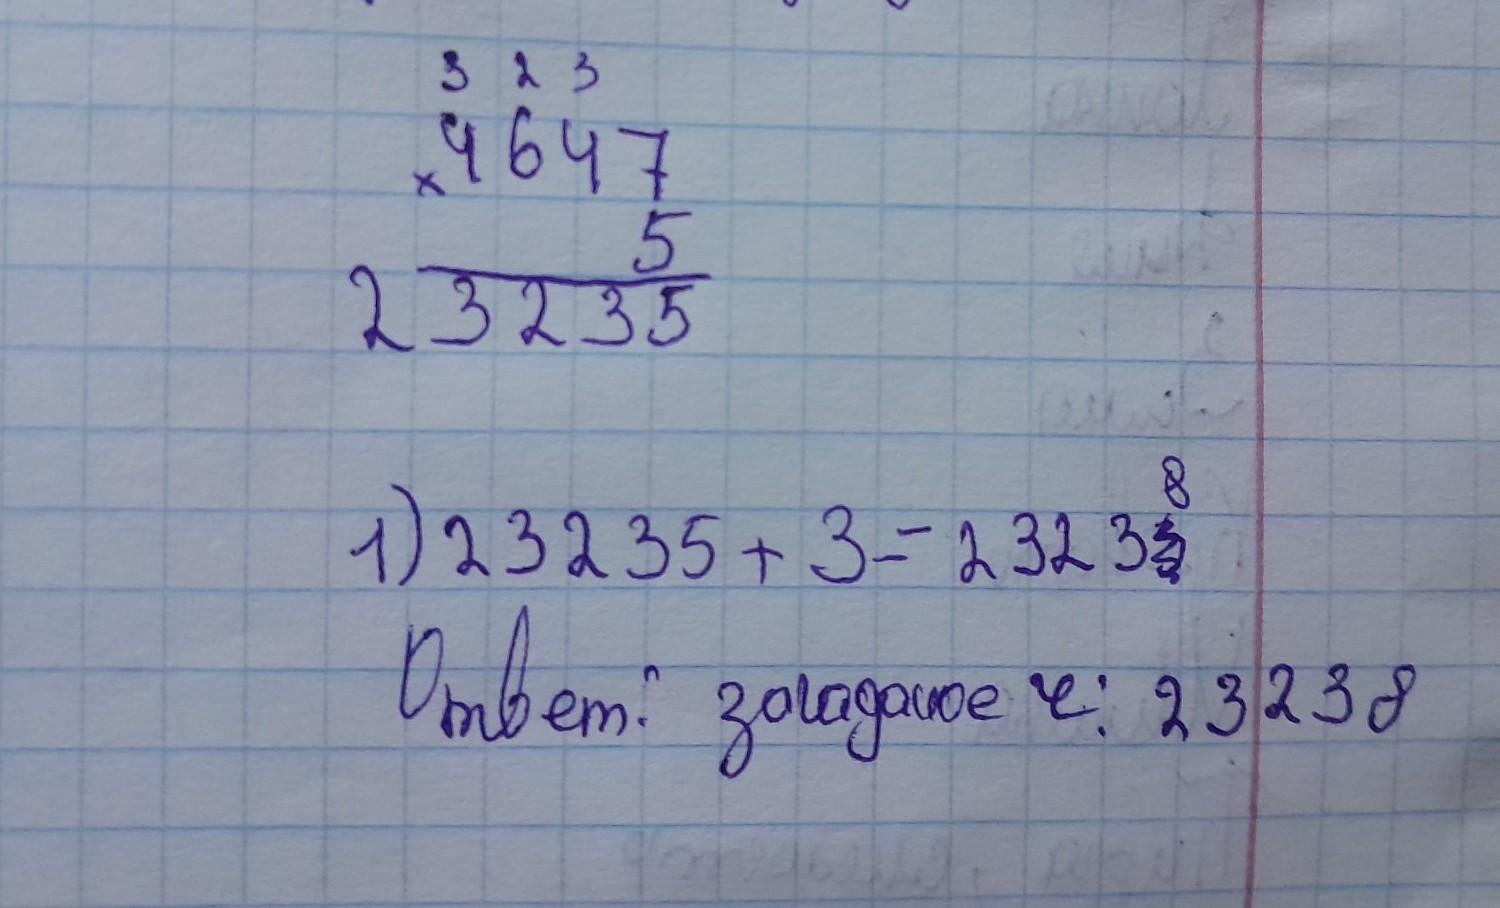 3 2 3
× 4647
5
23235
1) 23235 + 3 = 23238
Ответ: загаданое ч: 23238